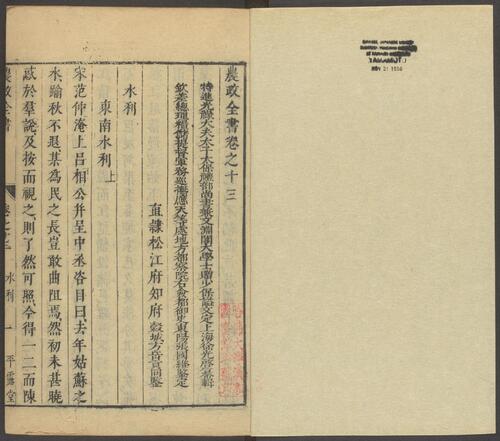 農政全書卷之十三
特進光祿大夫太子太保禮部尚書兼文淵閣大學士贈少保諡文定上海徐光啓纂輯
欽差總理糧儲提督軍務巡撫應天等處地方都察院右僉都御史東陽張國維鑒定
直隸松江府知府穀城方岳貢同鑒
水利
東南水利上
宋范仲淹上呂相公幷呈中丞咨目曰去年姑蘇之
水踰秋不退某為民之長豈敢曲阻焉然初未甚曉
惑於羣說及按而視之則了然可照今得一二而陳
農政全書 卷之十三 水利 一 平露堂
NOV 21 1950